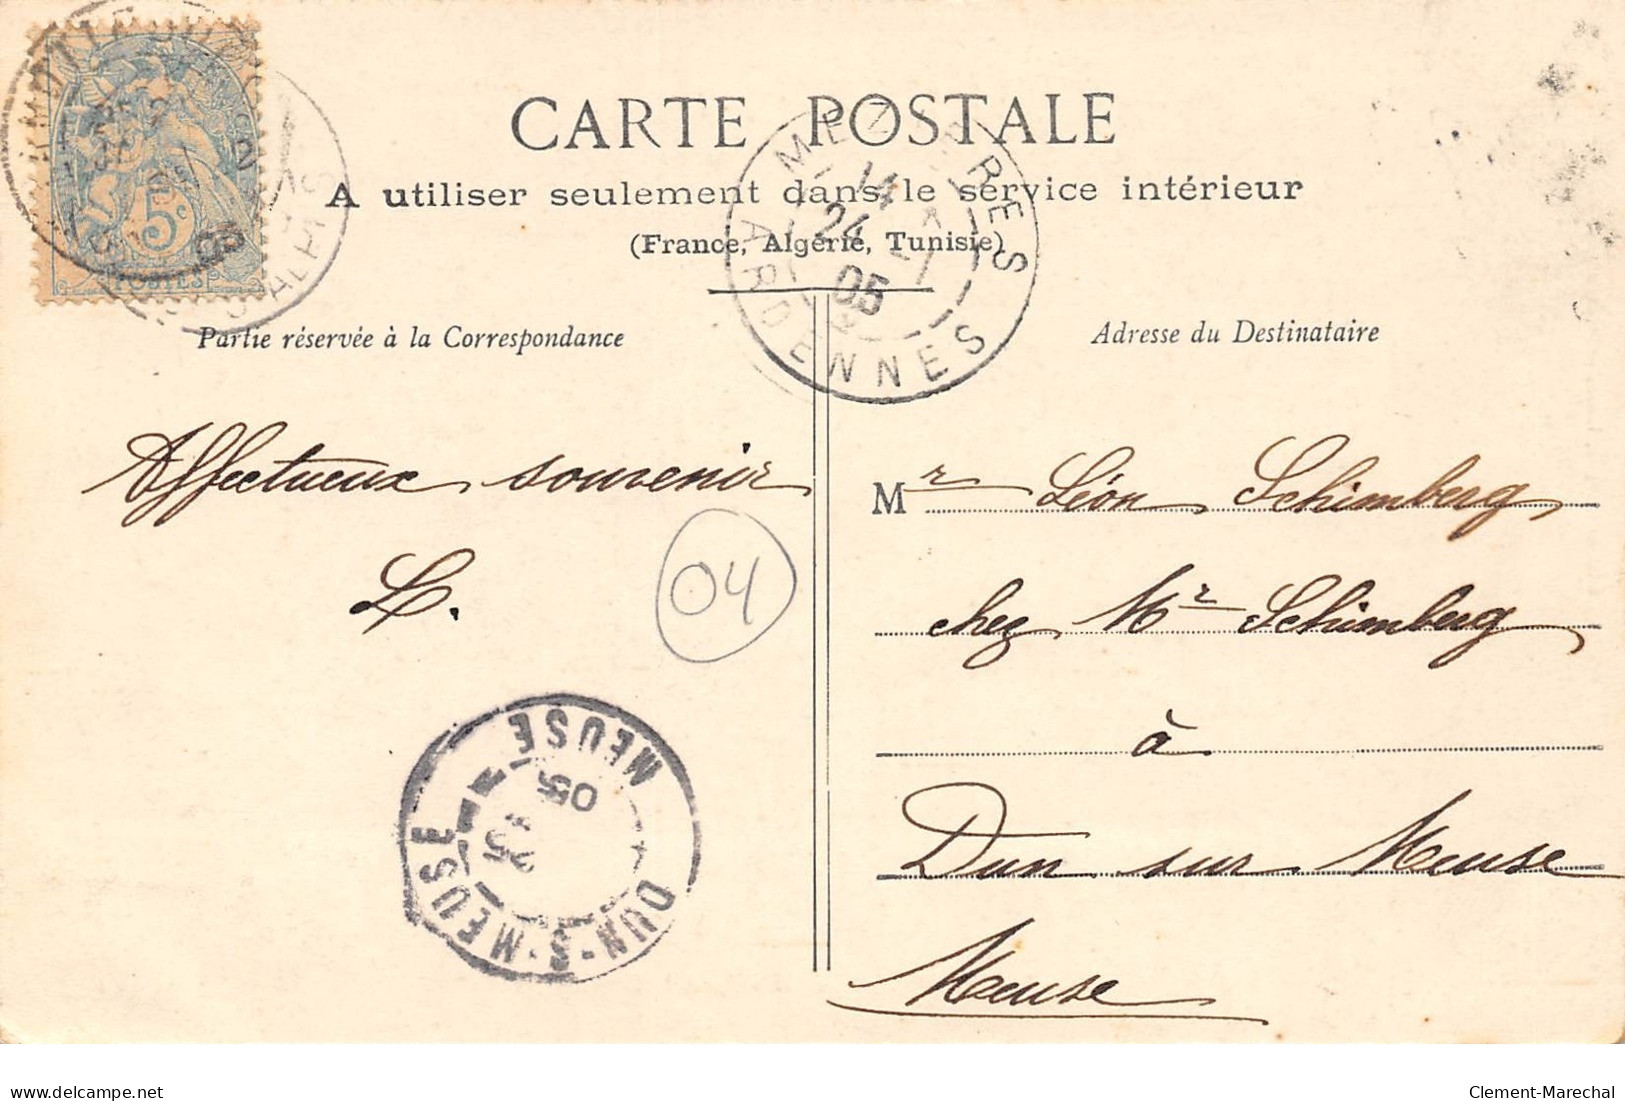 CARTE POSTALE
A utiliser seulement dans le service intérieur
(France, Algérie, Tunisie)
Partie réservée à la Correspondance
Adresse du Destinataire
5c
POSTES
MEZIERES
14
24
05
ARDENNES
Affectueux souvenir
L.
04
Mr Léon Schimberg,
chez Mr Schimberg
à
Dun sur Meuse
Meuse
DUN-S-MEUSE
MEUSE
05
delcampe.net
Clement-Marechal